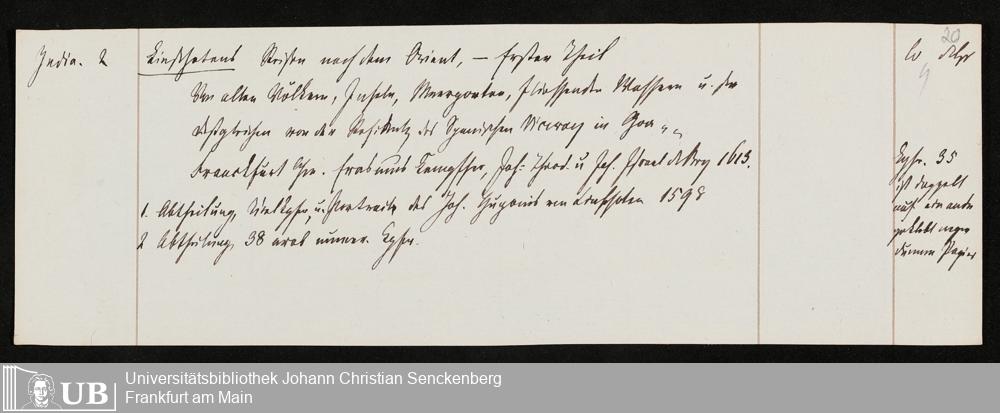 20
India. 2
Linschotens Reisen nach dem Orient, – Erster Theil
Von allen Völkern, Inseln, Meerporten, fliessenden Wassern u. der
deßgleichen von der Residentz des Spanischen Viceroy in Goa „ „
Franckfurt Chr. Erasmus Kempffer, Joh: Theod. u Joh. Israel de Bry 1613.
1. Abtheilung, Titelkpfer, u. Portraite des Joh. Hugonis von Linschoten 1598
2 Abtheilung, 38 arab numer. Kpfr.
4
Kpfr. 35
ist doppelt
auf
geklebt wegen
dünnem Papier
UB
Universitätsbibliothek Johann Christian Senckenberg
Frankfurt am Main